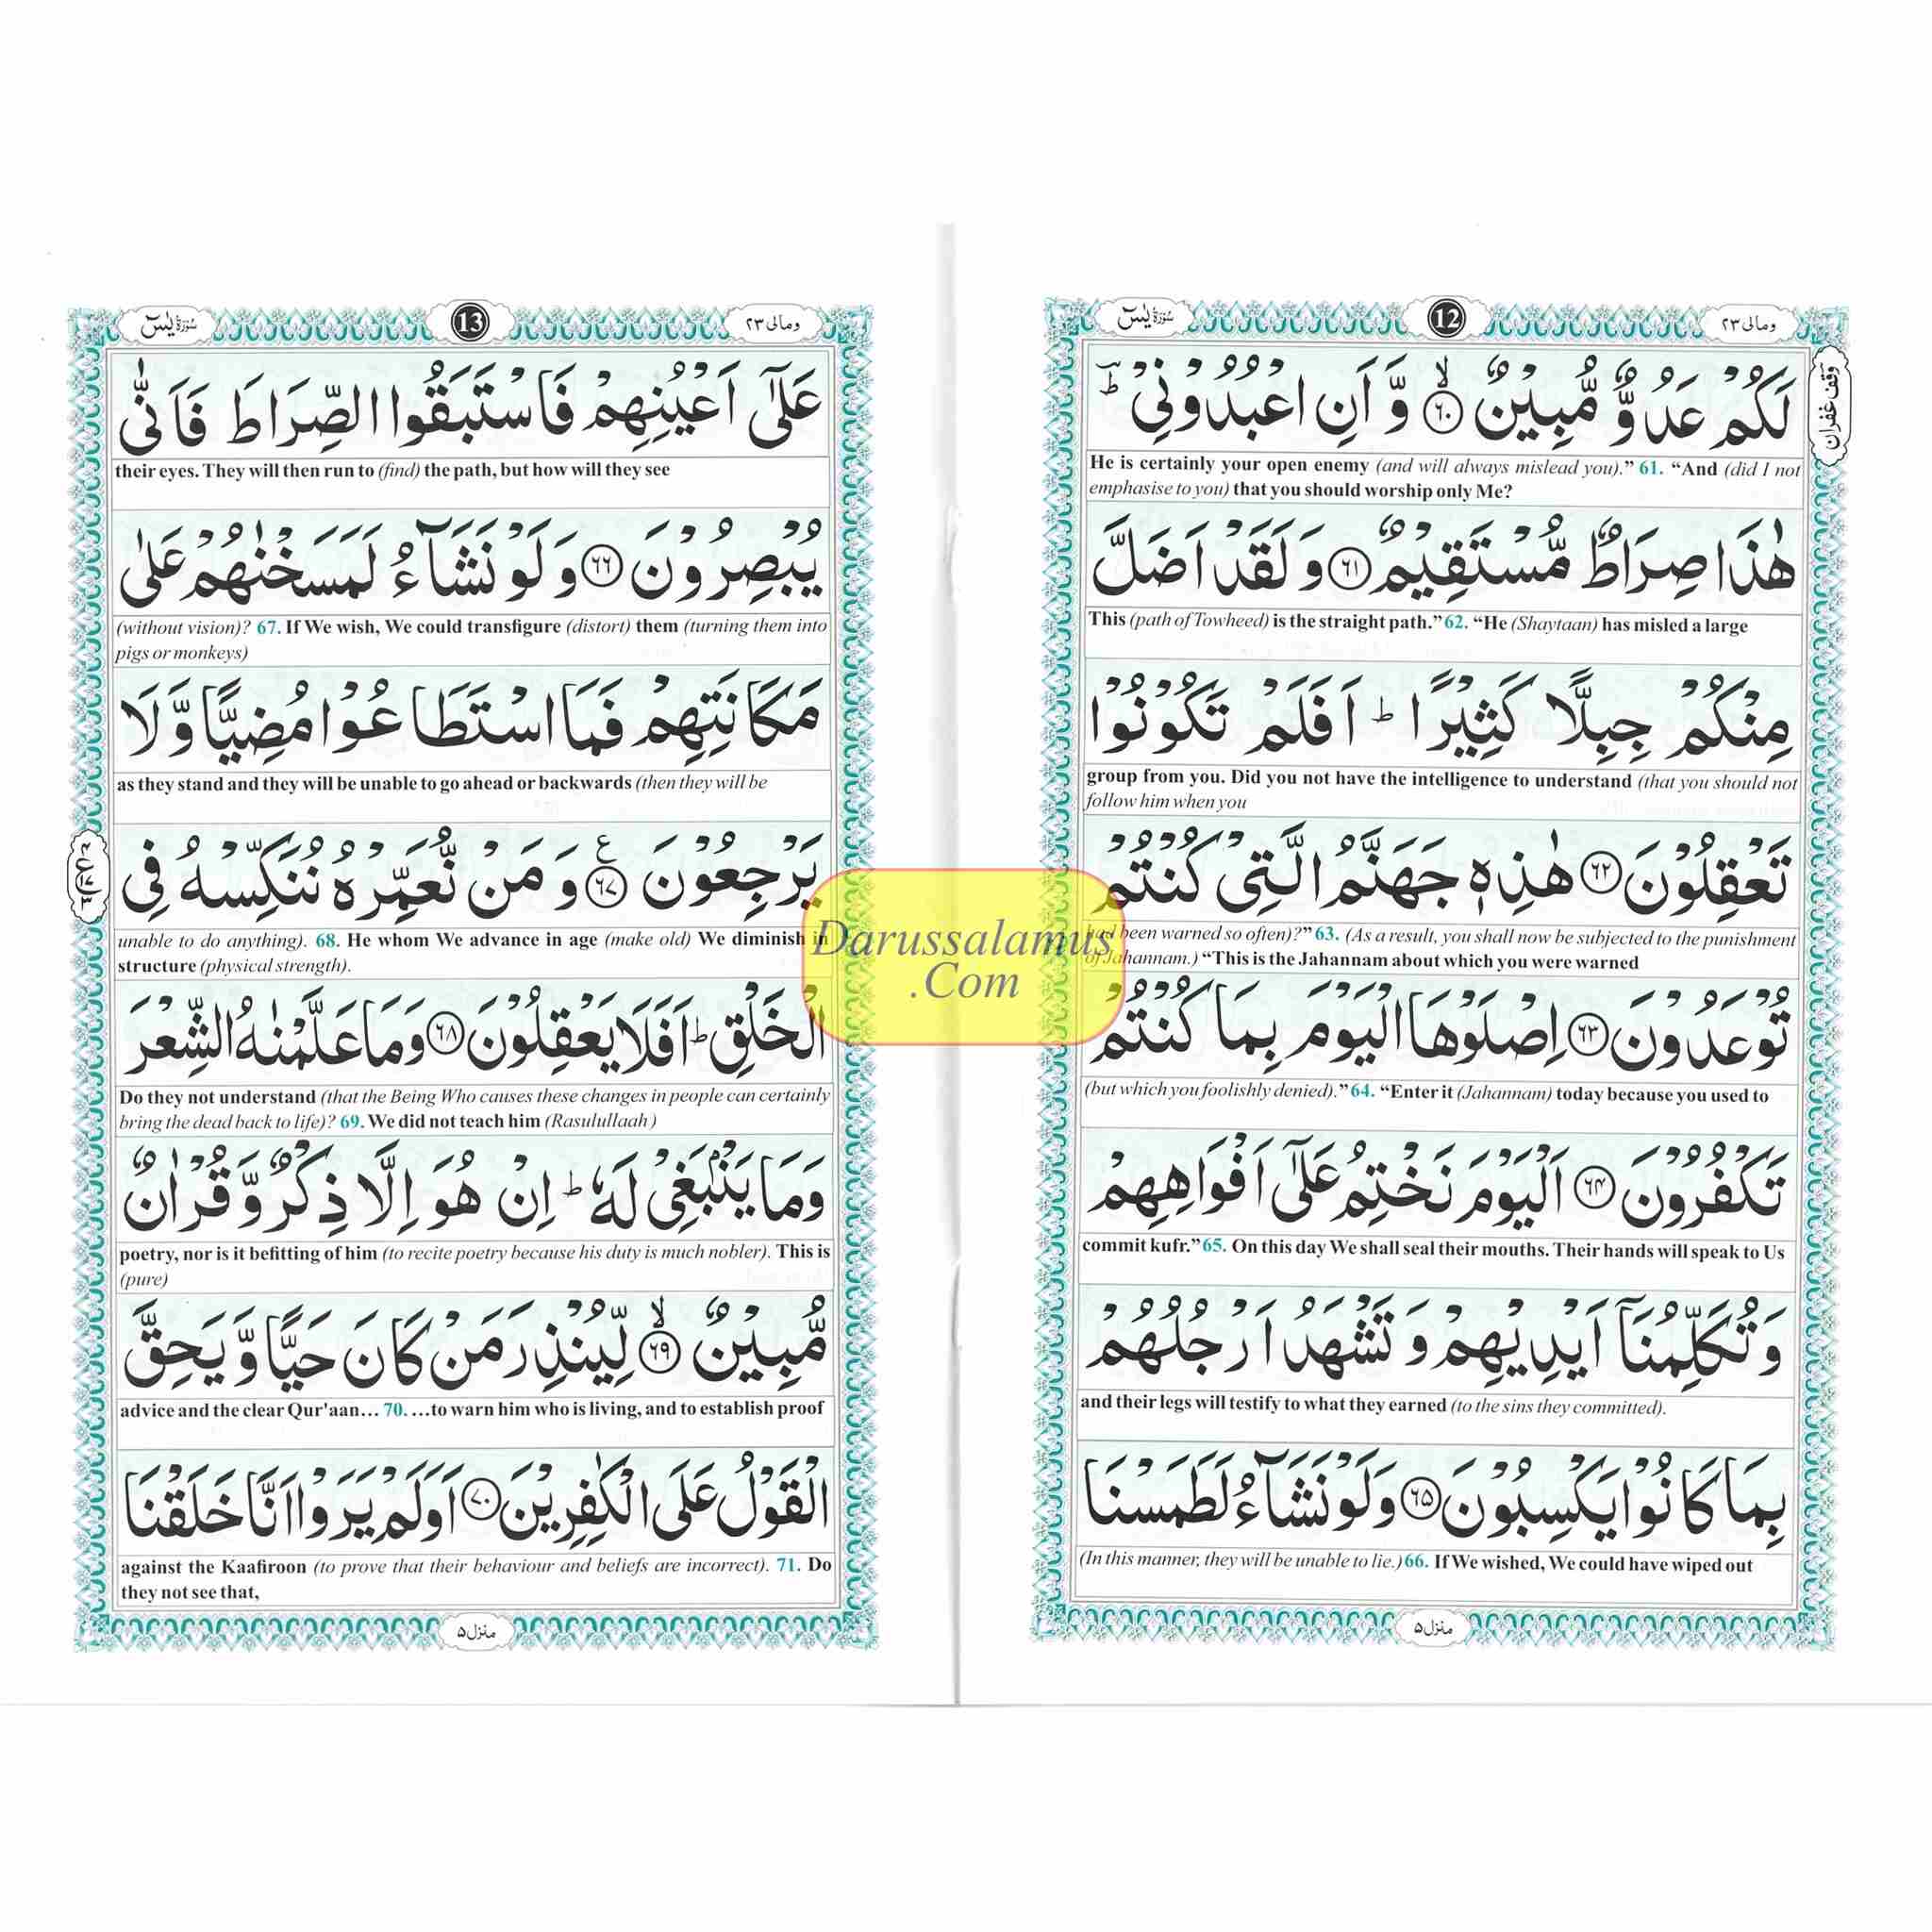 سُوْرَةُ يٰسٓ
12
ومالی ٢٣
وقف غفران
لَكُمْ عَدُوٌّ مُّبِيْنٌ ۙ﴿٦٠﴾ وَّ اَنِ اعْبُدُوْنِيْ ؕ
He is certainly your open enemy (and will always mislead you).” 61. “And (did I not
emphasise to you) that you should worship only Me?
هٰذَا صِرَاطٌ مُّسْتَقِيْمٌ ﴿٦١﴾ وَلَقَدْ اَضَلَّ
This (path of Towheed) is the straight path.” 62. “He (Shaytaan) has misled a large
مِنْكُمْ جِبِلًّا كَثِيْرًا ؕ اَفَلَمْ تَكُوْنُوْا
group from you. Did you not have the intelligence to understand (that you should not
follow him when you
تَعْقِلُوْنَ ﴿٦٢﴾ هٰذِهٖ جَهَنَّمُ الَّتِيْ كُنْتُمْ
had been warned so often)?” 63. (As a result, you shall now be subjected to the punishment
of Jahannam.) “This is the Jahannam about which you were warned
تُوْعَدُوْنَ ﴿٦٣﴾ اِصْلَوْهَا الْيَوْمَ بِمَا كُنْتُمْ
(but which you foolishly denied).” 64. “Enter it (Jahannam) today because you used to
تَكْفُرُوْنَ ﴿٦٤﴾ اَلْيَوْمَ نَخْتِمُ عَلٰٓى اَفْوَاهِهِمْ
commit kufr.” 65. On this day We shall seal their mouths. Their hands will speak to Us
وَتُكَلِّمُنَآ اَيْدِيْهِمْ وَتَشْهَدُ اَرْجُلُهُمْ
and their legs will testify to what they earned (to the sins they committed).
بِمَا كَانُوْا يَكْسِبُوْنَ ﴿٦٥﴾ وَلَوْ نَشَآءُ لَطَمَسْنَا
(In this manner, they will be unable to lie.) 66. If We wished, We could have wiped out
منزل ٥
سُوْرَةُ يٰسٓ
13
ومالی ٢٣
عَلٰٓى اَعْيُنِهِمْ فَاسْتَبَقُوا الصِّرَاطَ فَاَنّٰى
their eyes. They will then run to (find) the path, but how will they see
يُبْصِرُوْنَ ﴿٦٦﴾ وَلَوْ نَشَآءُ لَمَسَخْنٰهُمْ عَلٰى
(without vision)? 67. If We wish, We could transfigure (distort) them (turning them into
pigs or monkeys)
مَكَانَتِهِمْ فَمَا اسْتَطَاعُوْا مُضِيًّا وَّلَا
as they stand and they will be unable to go ahead or backwards (then they will be
يَرْجِعُوْنَ ﴿٦٧﴾ ع وَمَنْ نُّعَمِّرْهُ نُنَكِّسْهُ فِي
unable to do anything). 68. He whom We advance in age (make old) We diminish in
structure (physical strength).
الْخَلْقِ ؕ اَفَلَا يَعْقِلُوْنَ ﴿٦٨﴾ وَمَا عَلَّمْنٰهُ الشِّعْرَ
Do they not understand (that the Being Who causes these changes in people can certainly
bring the dead back to life)? 69. We did not teach him (Rasulullaah )
وَمَا يَنْۢبَغِيْ لَهٗ ؕ اِنْ هُوَ اِلَّا ذِكْرٌ وَّقُرْاٰنٌ
poetry, nor is it befitting of him (to recite poetry because his duty is much nobler). This is
(pure)
مُّبِيْنٌ ۙ﴿٦٩﴾ لِّيُنْذِرَ مَنْ كَانَ حَيًّا وَّيَحِقَّ
advice and the clear Qur'aan… 70. …to warn him who is living, and to establish proof
الْقَوْلُ عَلَى الْكٰفِرِيْنَ ﴿٧٠﴾ اَوَلَمْ يَرَوْا اَنَّا خَلَقْنَا
against the Kaafiroon (to prove that their behaviour and beliefs are incorrect). 71. Do
they not see that,
منزل ٥
Darussalamus
.Com